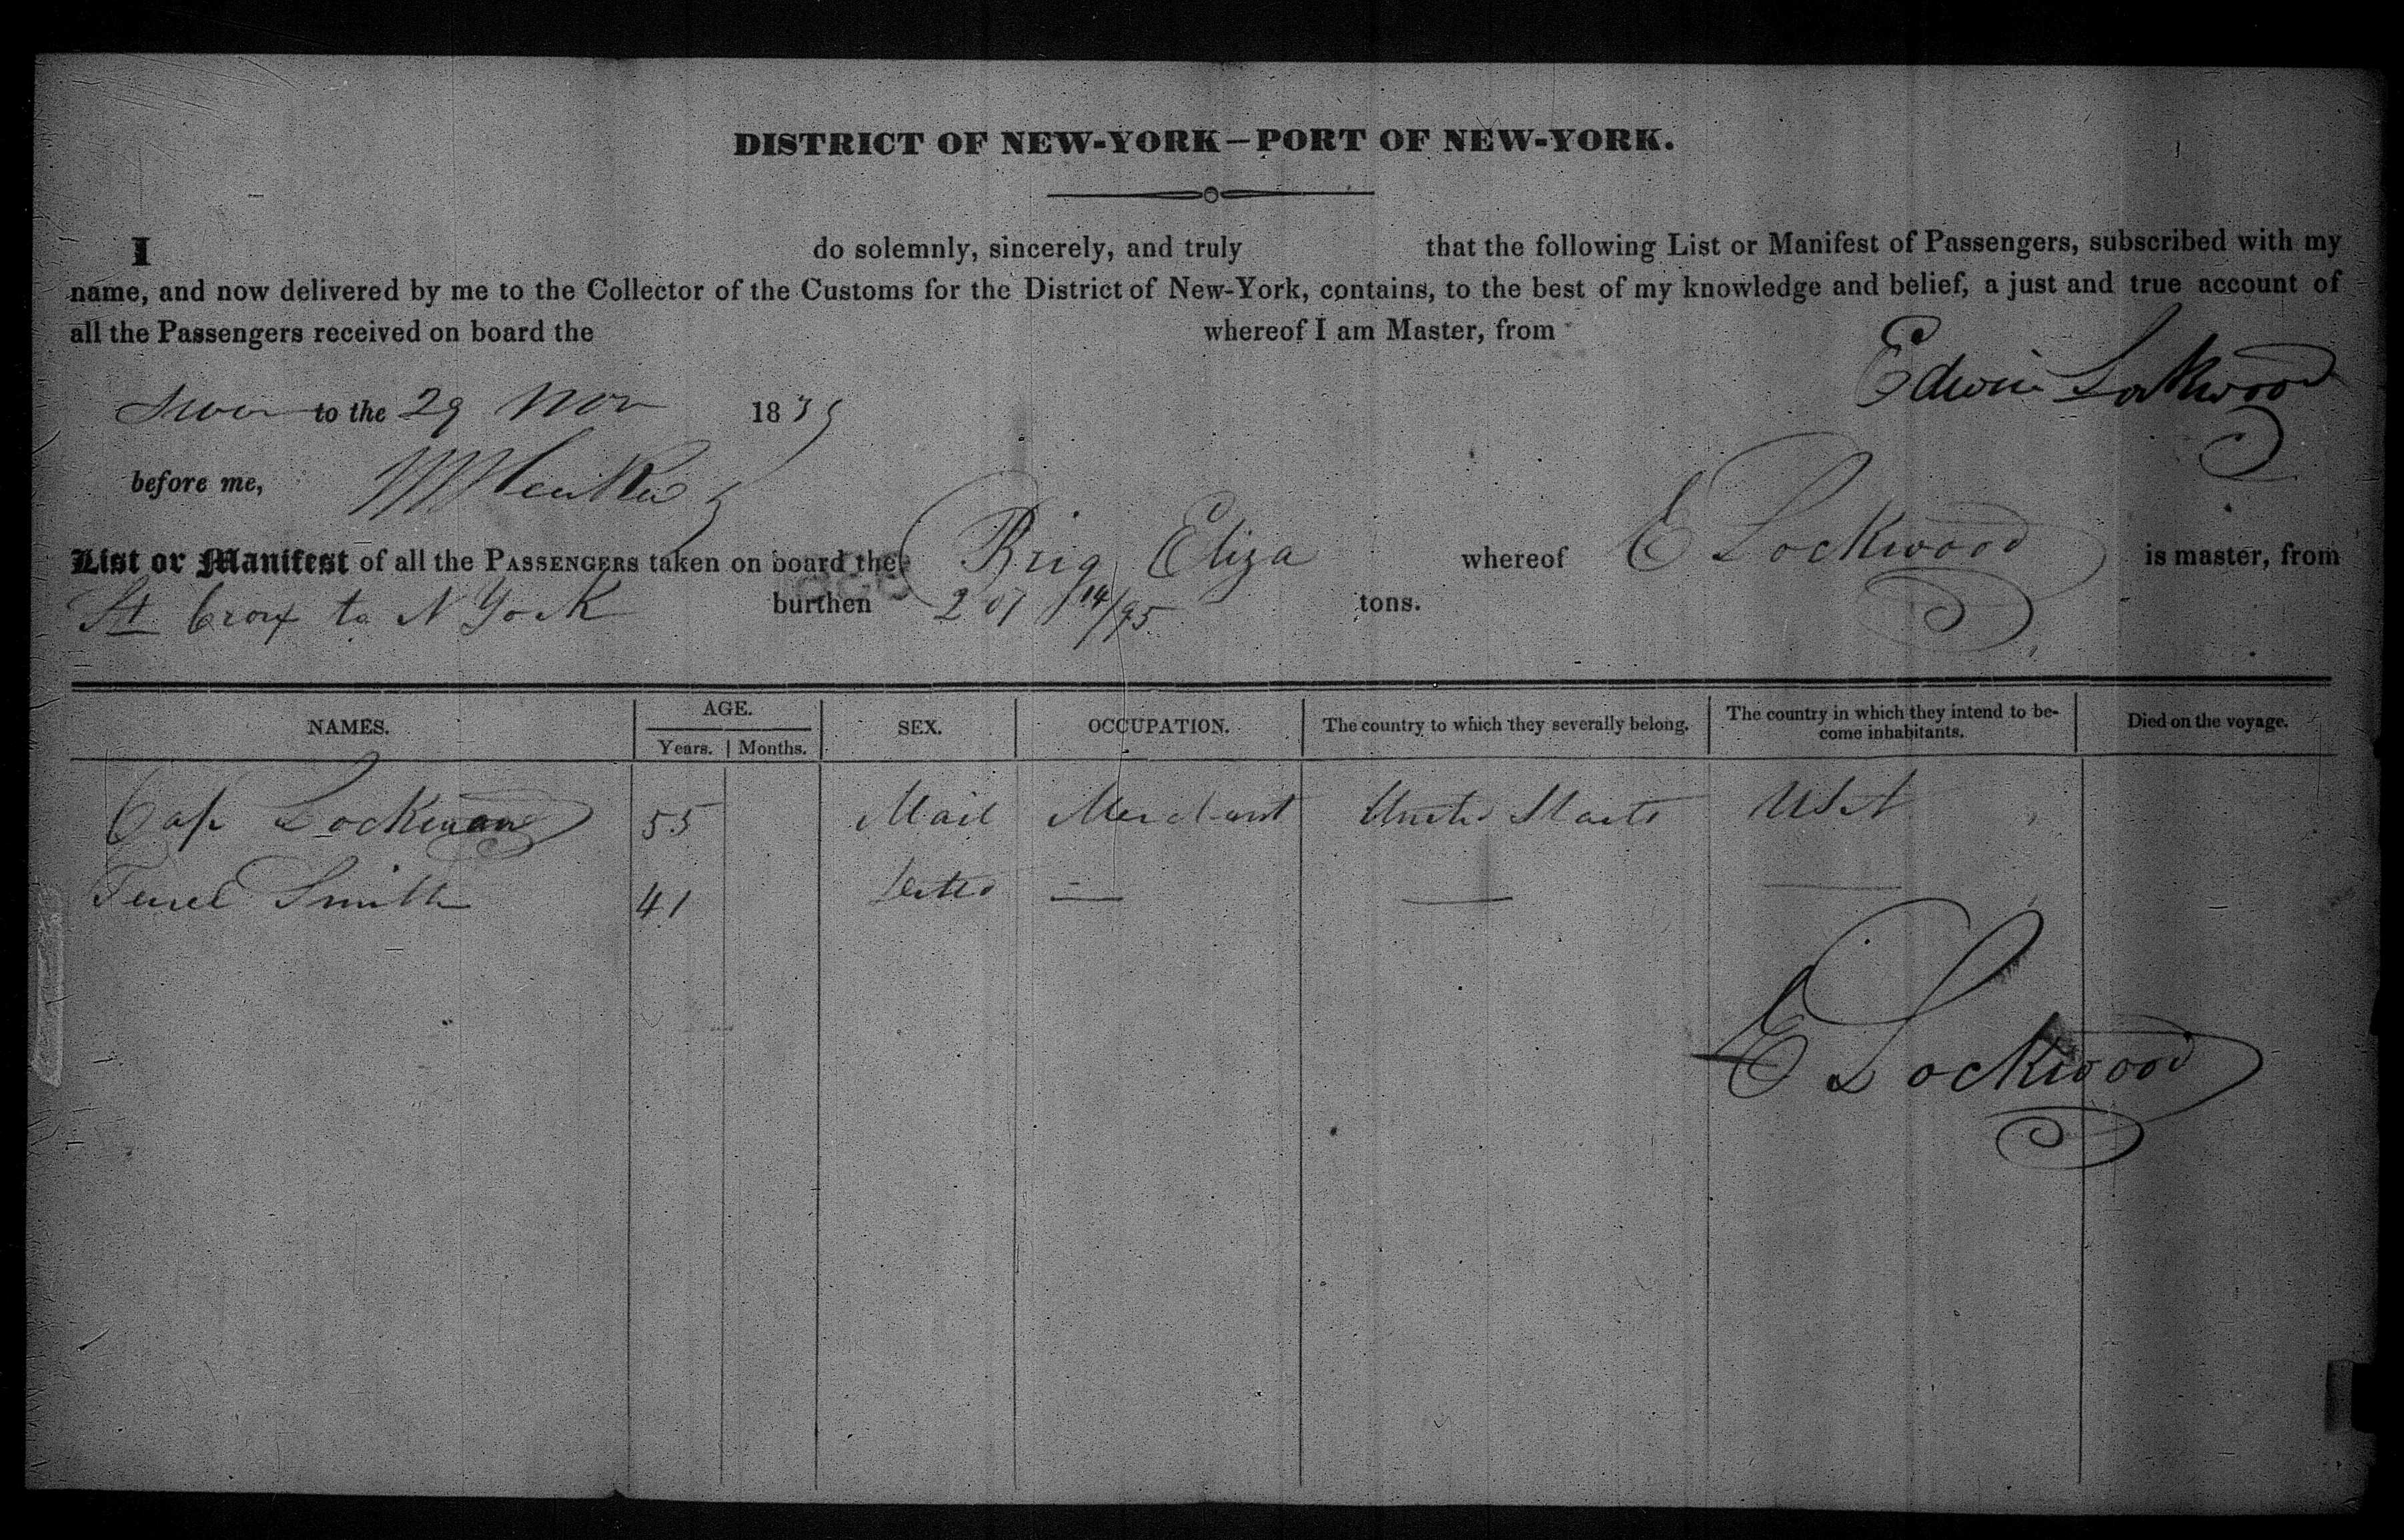 DISTRICT OF NEW-YORK—PORT OF NEW-YORK.
I do solemnly, sincerely, and truly that the following List or Manifest of Passengers, subscribed with my
name, and now delivered by me to the Collector of the Customs for the District of New-York, contains, to the best of my knowledge and belief, a just and true account of
all the Passengers received on board the whereof I am Master, from
Edwin Lockwood
to the 29 Nov 183
before me,
List or Manifest of all the PASSENGERS taken on board the Brig Eliza whereof E Lockwood is master, from
St Croix to N York burthen 207 14/95 tons.
NAMES. AGE. SEX. OCCUPATION. The country to which they severally belong. The country in which they intend to be- Died on the voyage.
Years. Months. come inhabitants.
Cap 55 Mail Merchant United Staets USA
Smith 41
E Lockwood